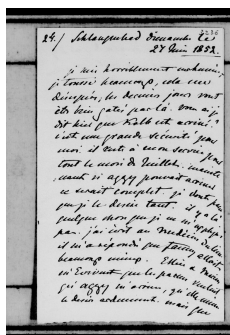 24/ Schlangenbad Dimanche le
27 Juin 1852.
je suis horriblement enrhumée,
je tousse beaucoup, cela me
désespère, les derniers jours vont
être bien gatés par là. Vous ai-je
dit bien que Kolb est arrivé?
c'est une grande sécurité pour
moi il reste à mon service pour
tout le mois de Juillet, mainte
nant si Aggy pouvait arriver
ce serait complet. je doute
que je le desire tant. il y a là
quelque chose que je ne m'explique
pas. j'ai écrit au médecin de
il m'a répondu que Fanny allait
beaucoup mieux. Ellice a
m'écrivent que le
qu'Aggy m'arrive,
le desire ardemment. mais que